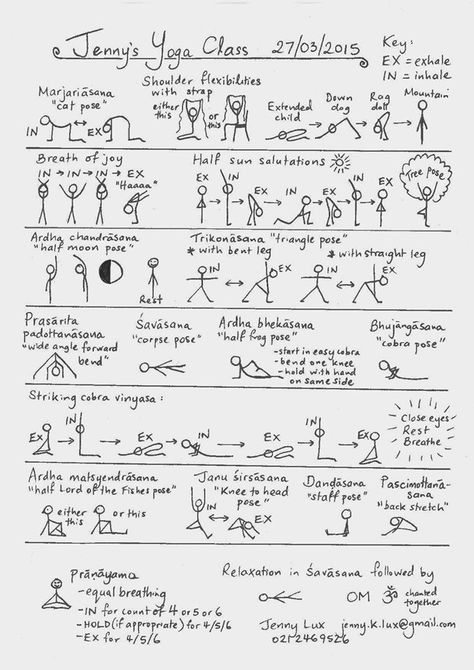 Jenny's Yoga Class 27/03/2015
Key:
EX = exhale
IN = inhale
Marjariāsana
"cat pose"
IN EX
Shoulder flexibilities
with strap
either
this
or
this
Extended
child
Down
dog
Rag
doll
Mountain
Breath of joy
IN → IN → IN → EX
"Haaaa"
Half sun salutations
EX IN EX IN EX IN EX
Tree pose
Ardha chandrāsana
"half moon pose"
Rest
Trikonāsana "triangle pose"
* with bent leg
* with straight leg
IN EX IN EX
Prasārita
padottanāsana
"wide angle forward
bend"
Śavāsana
"corpse pose"
Ardha bhekāsana
"half frog pose"
- start in easy cobra
- bend one knee
- hold with hand
on same side
Bhujāngāsana
"cobra pose"
Striking cobra vinyasa:
EX IN EX IN EX IN EX
Close eyes
Rest
Breathe
Ardha matsyendrāsana
"half Lord of the Fishes pose"
either
this
or this
Janu śirsāsana
"Knee to head
pose"
IN EX
Danḍāsana
"staff pose"
Pascimottanā-
sana
"back stretch"
Prāṇāyama
- equal breathing
- IN for count of 4 or 5 or 6
- HOLD (if appropriate) for 4/5/6
- EX for 4/5/6
Relaxation in Śavāsana followed by
OM ॐ chanted
together
Jenny Lux jenny.k.lux@gmail.com
0212469526